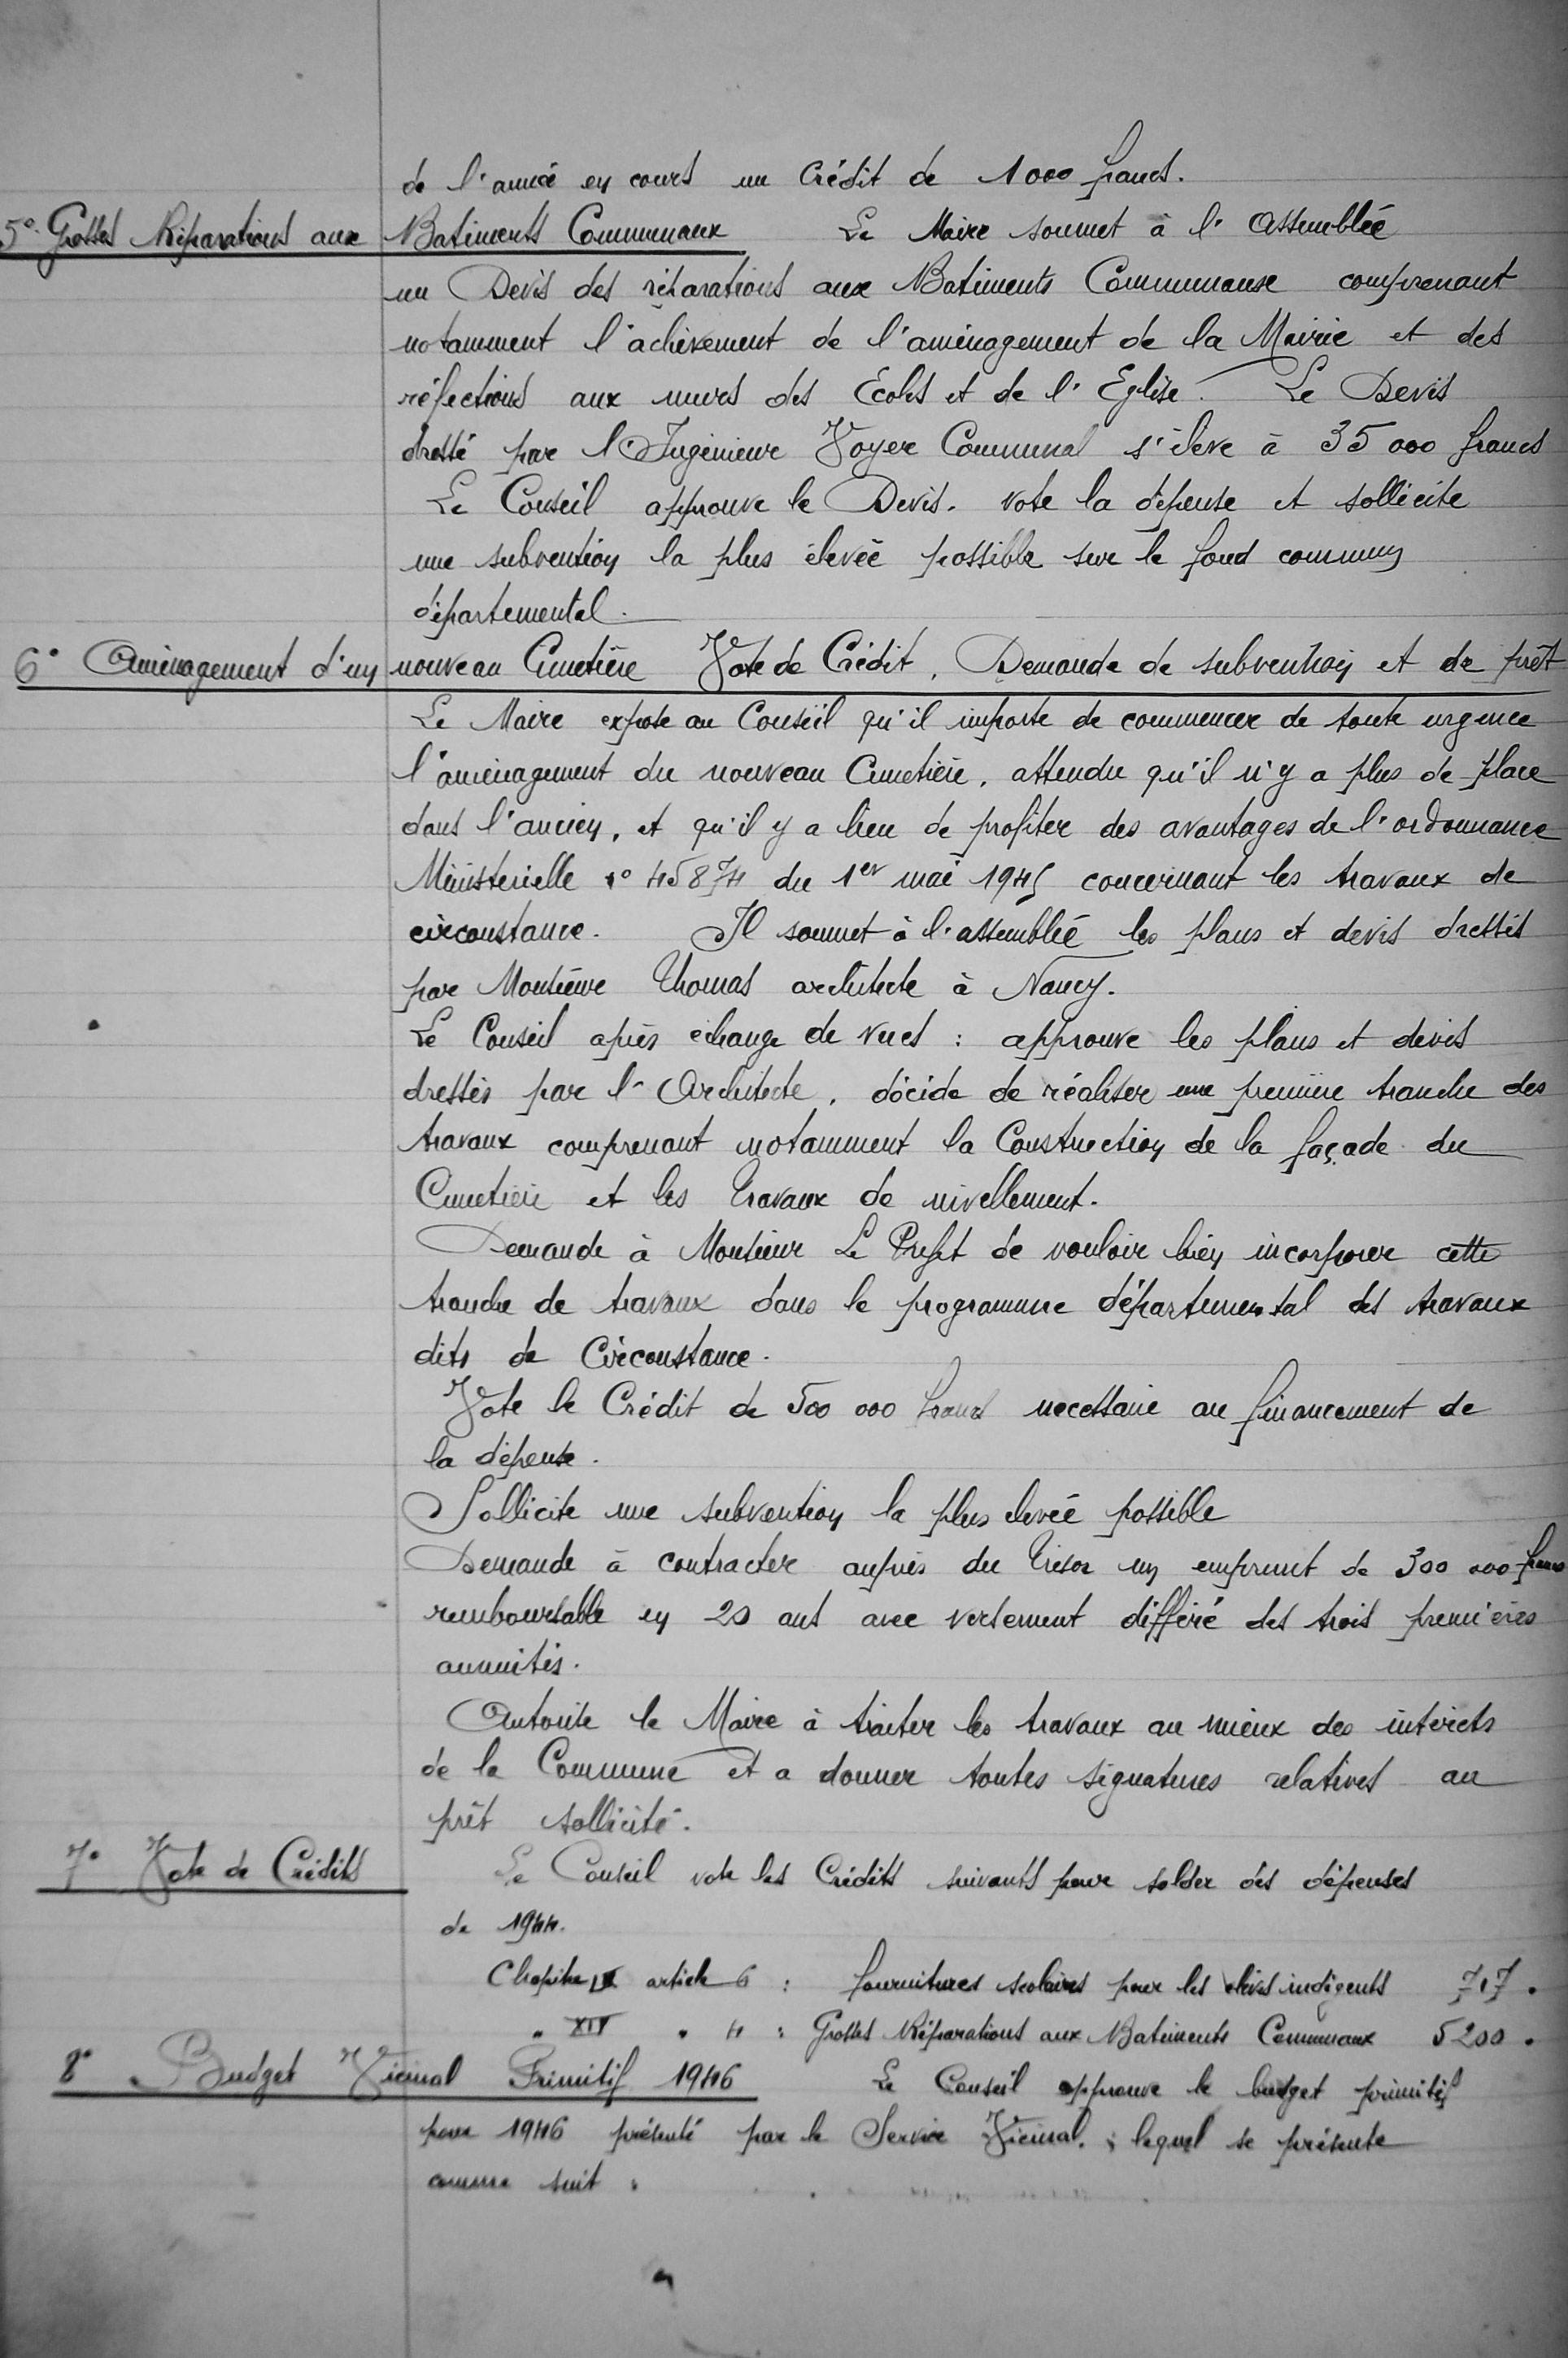 de l'année en cours un Crédit de 1000 francs.
5° Grosses Réparations aux Batiments Communaux Le Maire soumet à l'Assemblée
un Devis des réparations aux Batiments Communaux comprenant
notamment l'achèvement de l'aménagement de la Mairie et des
réfections aux murs des Ecoles et de l'Eglise. Le Devis
dressé par l'Ingénieur Voyer Communal s'élève à 35 000 francs
Le Conseil approuve le Devis. vote la dépense et sollicite
une subvention la plus élevée possible sur le fond commun
départemental.
6° Aménagement d'un nouveau Cimetière Vote de Crédit. Demande de subvention et de prêt
Le Maire expose au Conseil qu'il importe de commencer de toute urgence
l'aménagement du nouveau Cimetière, attendu qu'il n'y a plus de place
dans l'ancien, et qu'il y a lieu de profiter des avantages de l'ordonnance
Ministerielle n° 45874 du 1er mai 1945 concernant les travaux de
circonstance. Il soumet à l'assemblée les plans et devis dressés
par Monsieur Thomas architecte à Nancy.
Le Conseil après échange de vues : approuve les plans et devis
dressés par l'Architecte, décide de réaliser une première tranche des
travaux comprenant notamment la Construction de la façade du
Cimetière et les Travaux de nivellement.
Demande à Monsieur Le Préfet de vouloir bien incorporer cette
tranche de travaux dans le programme départemental des travaux
dits de Circonstance.
Vote le Crédit de 500 000 francs necessaire au financement de
la dépense.
Sollicite une subvention la plus elevée possible
Demande à contracter auprès du Trésor un emprunt de 300 000 francs
remboursable en 20 ans avec versement différé des trois premières
annuités.
Autorise le Maire à traiter les travaux au mieux des intérêts
de la Commune et a donner toutes signatures relatives au
prêt sollicité.
7° Vote de Crédits Le Conseil vote les Crédits suivants pour solder des dépenses
de 1944.
Chapitre IX article 6 : fournitures scolaires pour les élèves indigents 717.
" XIV " 4 : Grosses Réparations aux Batiments Communaux 5200.
8° Budget Vicinal Primitif 1946 Le Conseil approuve le budget primitif
pour 1946 présenté par le Service Vicinal. ; lequel se présente
comme suit :